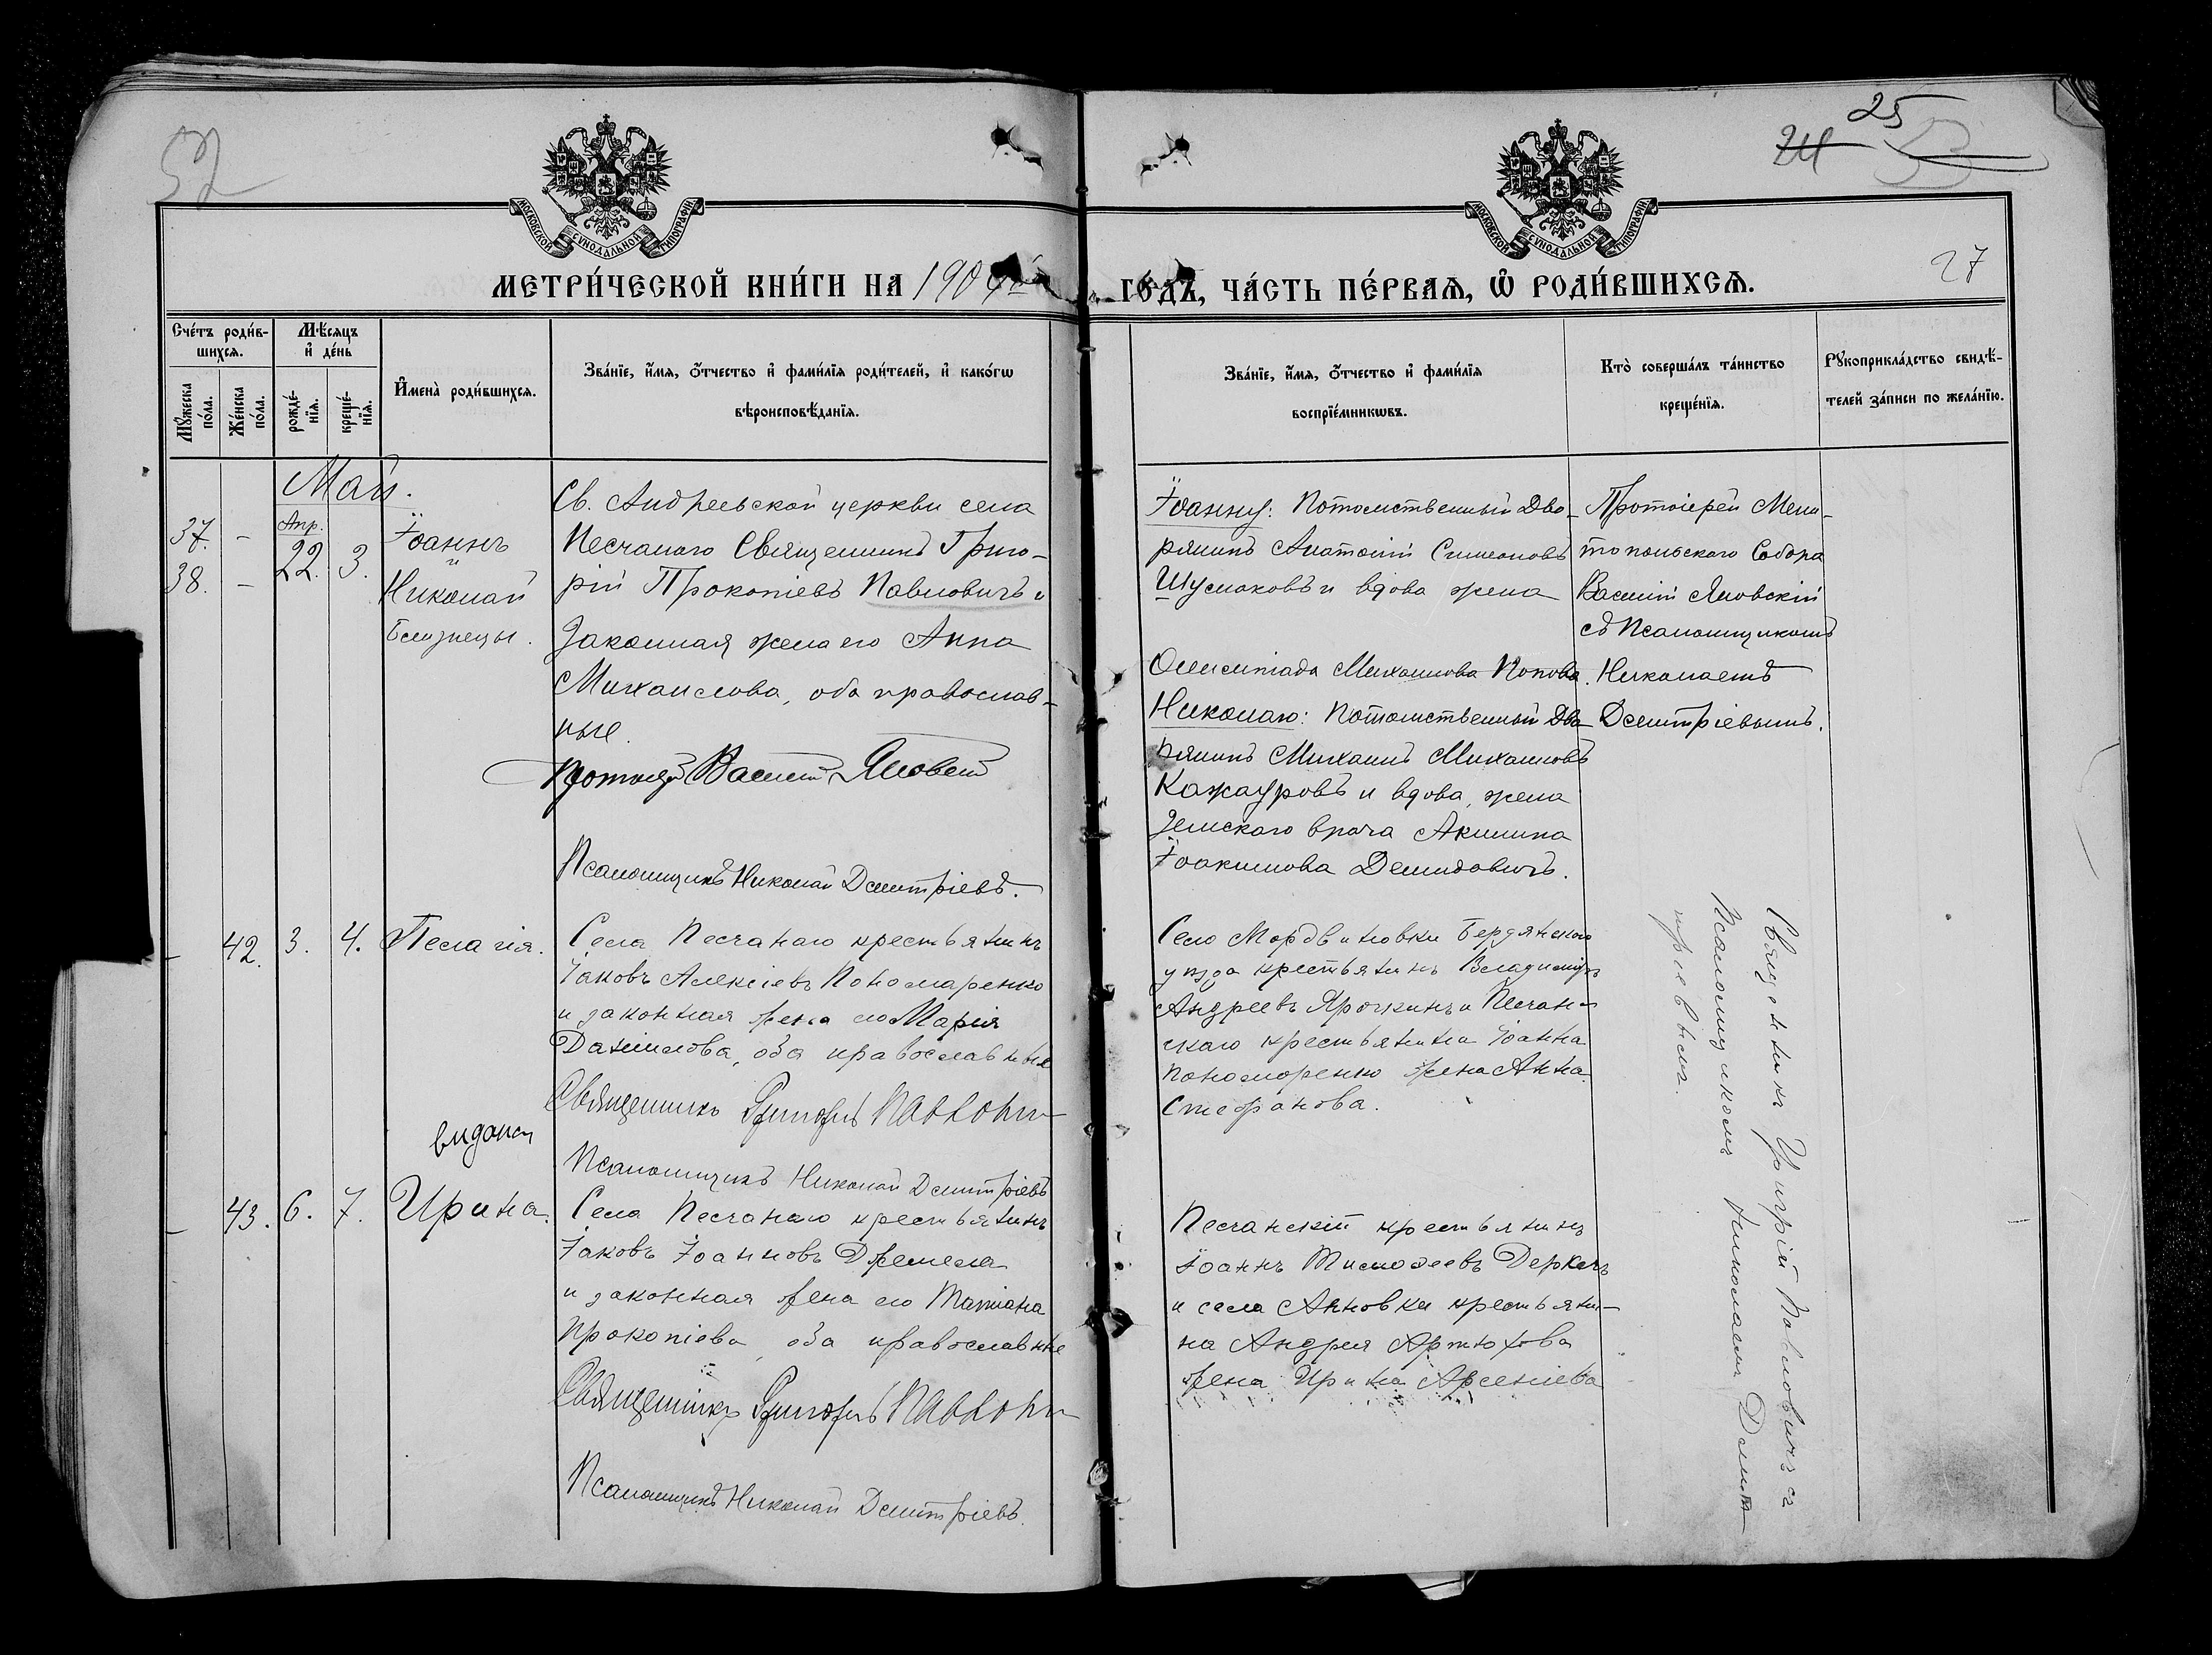 52
25
24 53
27
МОСКОВСКОЙ СѴНОДАЛЬНОЙ ТИПОГРАФІИ
МОСКОВСКОЙ СѴНОДАЛЬНОЙ ТИПОГРАФІИ
МЕТРИ́ЧЕСКОЙ КНИ́ГИ НА 1904
ГО́ДЪ, ЧА́СТЬ ПЕ́РВАѦ, Ѡ҆ РОДИ́ВШИХСѦ.
Сче́тъ роди́в-
шихсѧ.
Мꙋ́жеска по́ла.
Же́нска по́ла.
Мѣ́сѧцъ и҆ де́нь
рожде́-нїѧ.
креще́-нїѧ.
И҆мена̀ роди́вшихсѧ.
Зва́нїе, и҆́мѧ, ѻ҆́тчество и҆ фами́лїѧ роди́телей, и҆ како́гѡ
вѣроисповѣ́данїѧ.
Зва́нїе, и҆́мѧ, ѻ҆́тчество и҆ фами́лїѧ
воспрїе́мникѡвъ.
Кто̀ соверша́лъ та́инство
креще́нїѧ.
Рꙋкоприкла́дство свидѣ́-
телей за́писи по жела́нїю.
Май.
37. -
38. -
Апр.
22. 3.
Іоаннъ
и
Николай
Близнецы.
Св. Андреевской церкви села
Песчанаго Священникъ Григо-
рій Прокопіевъ Павловичъ и
Законная жена его Анна
Михаилова, оба православ-
ные.
Протоіерей Василій Яновскій
Псаломщикъ Николай Димитріевъ.
Іоанну: Потомственный Дво-
рянинъ Анатолій Симеоновъ
Шусмаковъ и вдова жена
Олимпіада Михаилова Попова.
Николаю: Потомственный Дво-
рянинъ Михаилъ Михаиловъ
Кажауровъ и вдова, жена
Земскаго врача Акилина
Іоакимова Демидовичъ.
Протоіерей Мели-
топольскаго Собора
Василій Яновскій
съ Псаломщикомъ
Николаемъ
Димитріевымъ.
- 42. 3. 4. Пелагія.
Села Песчанаго крестьянинъ
Іаковъ Алексіевъ Пономаренко
и законная жена его Марія
Даніилова, оба православные
Священникъ Григорій Павлович
Псаломщикъ Николай Димитріевъ
Село Мордвиновки Бердянскаго
уѣзда крестьянинъ Владиміръ
Андреевъ Ярочкинъ и Песчан-
скаго крестьянина Іоанна
Пономоренко жена Анна
Стефанова.
видана
- 43. 6. 7. Ирина.
Села Песчанаго крестьянинъ
Іаковъ Іоанновъ Джемела
и законная жена его Татіана
Прокопіева, оба православные
Священникъ Григорій Павлович
Псаломщикъ Николай Димитріевъ.
Песчанскій крестьянинъ
Іоаннъ Тимофеевъ Деркачъ
и села Анновки крестьяни-
на Андрея Артюхова
жена Ирина Арсеніева
Священникъ Григорій Павловичъ съ
Псаломщикомъ Николаемъ Димит-
ріевымъ.